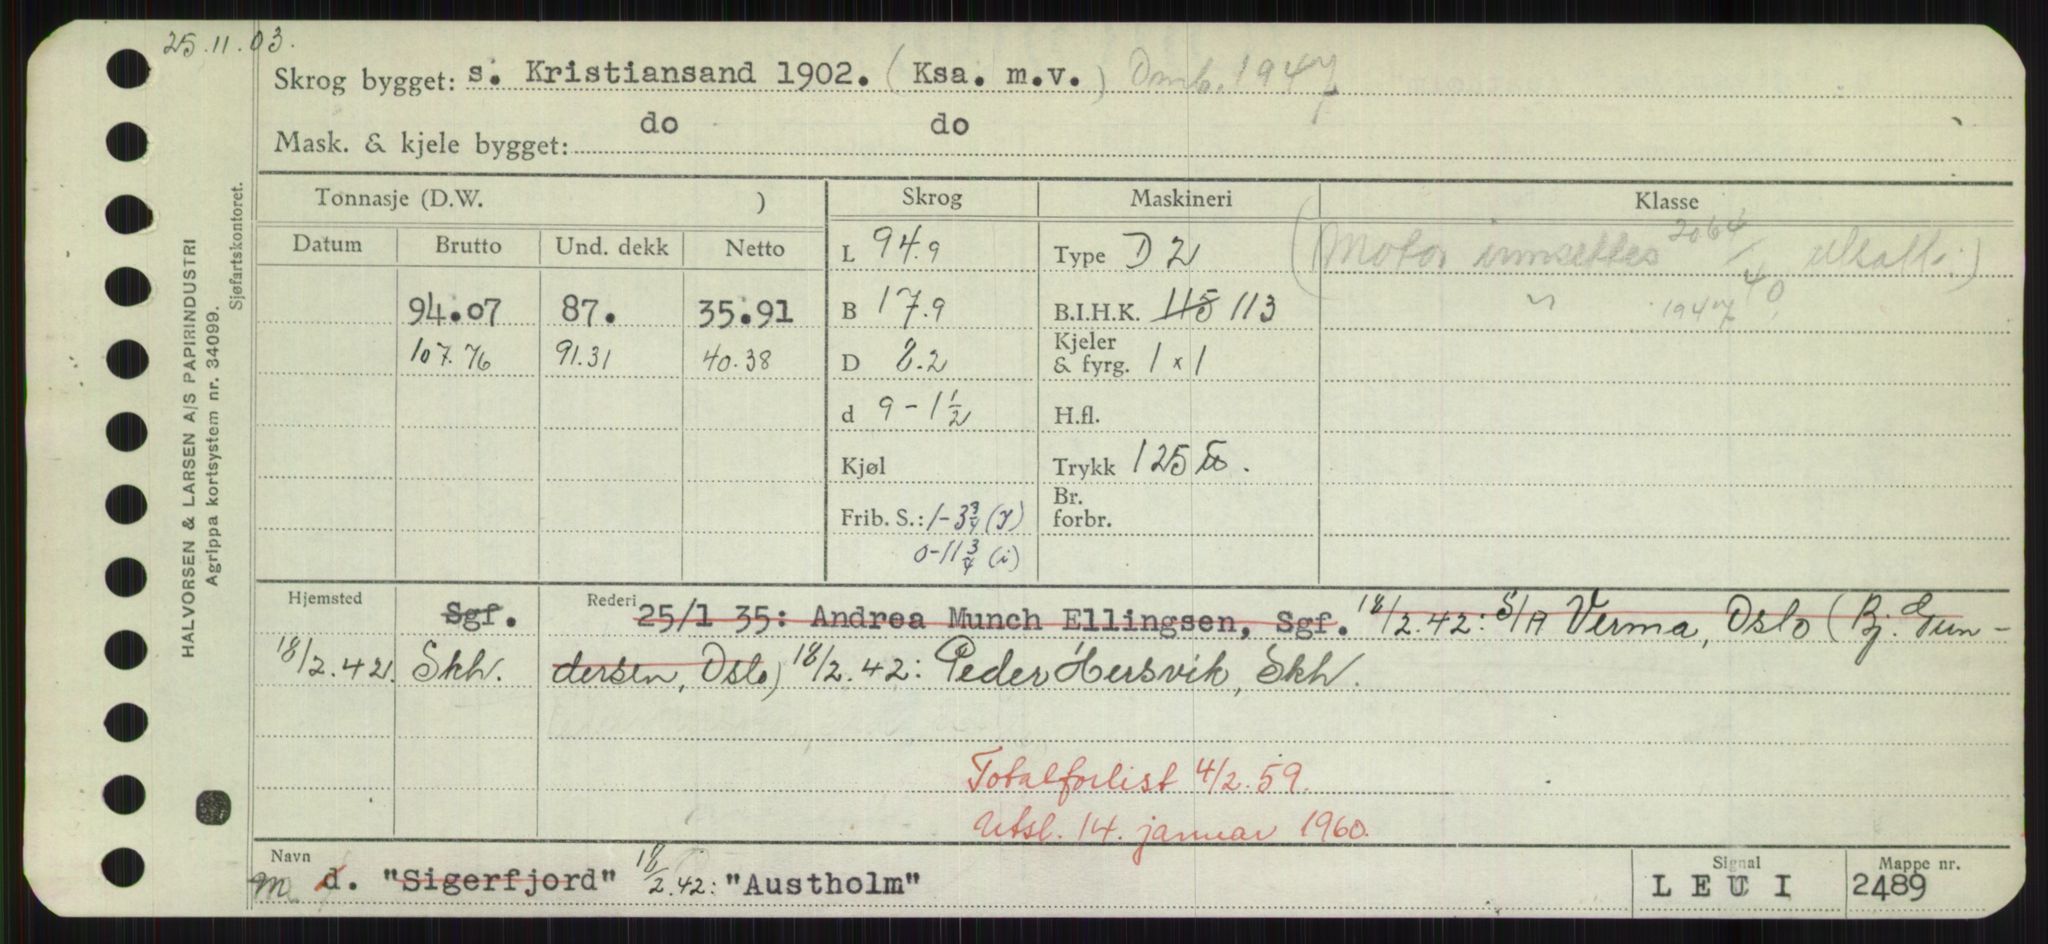 25.11.03.
Skrog bygget: s. Kristiansand 1902. (Ksa. m.v.) Omb. 1947
Mask. & kjele bygget: do do
Tonnasje (D.W. ) Skrog Maskineri Klasse
Datum Brutto Und. dekk Netto
L 94.9 Type D 2 (Motor innsettes /40,
94.07 87. 35.91 B 17.9 B.I.H.K. 115 113 " 1947
107.76 91.31 40.38 D 8.2 Kjeler & fyrg. 1 x 1
d 9 - 1 1/2 H.fl.
Kjøl Trykk 125 lb.
Frib. S.: 1-3 3/4 (s) Br. forbr.
0-11 3/4 (i)
Hjemsted Sgf. Rederi 25/1 35: Andrea Munch Ellingsen, Sgf. 18/2.42: S/A Verma, Oslo (Bj. Gun-
18/2.42. Skh. dersen, Oslo) 18/2.42: Peder Hersvik, Skh.
Totalforlist 4/2.59.
Utsl. 14. januar 1960.
Navn Signal Mappe nr.
m d. "Sigerfjord" 18/2.42: "Austholm" L E U I 2489
HALVORSEN & LARSEN A/S PAPIRINDUSTRI
Agrippa kortsystem nr. 34099.
Sjøfartskontoret.